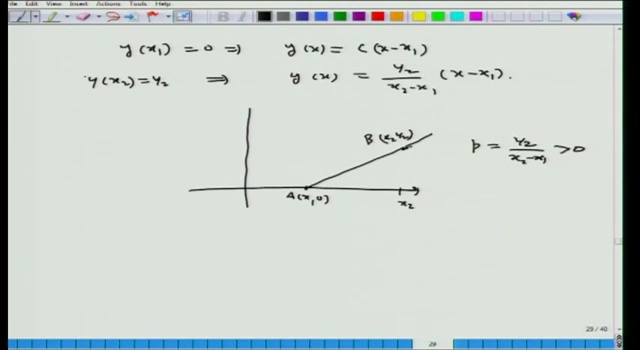 File Edit View Insert Actions Tools Help
y(x₁) = 0 ⇒ y(x) = C(x-x₁)
y(x₂) = y₂ ⇒ y(x) = y₂/(x₂-x₁) (x-x₁).
B(x₂, y₂)
p = y₂/(x₂-x₁) > 0
A(x₁, 0)
x₂
29 / 40
29